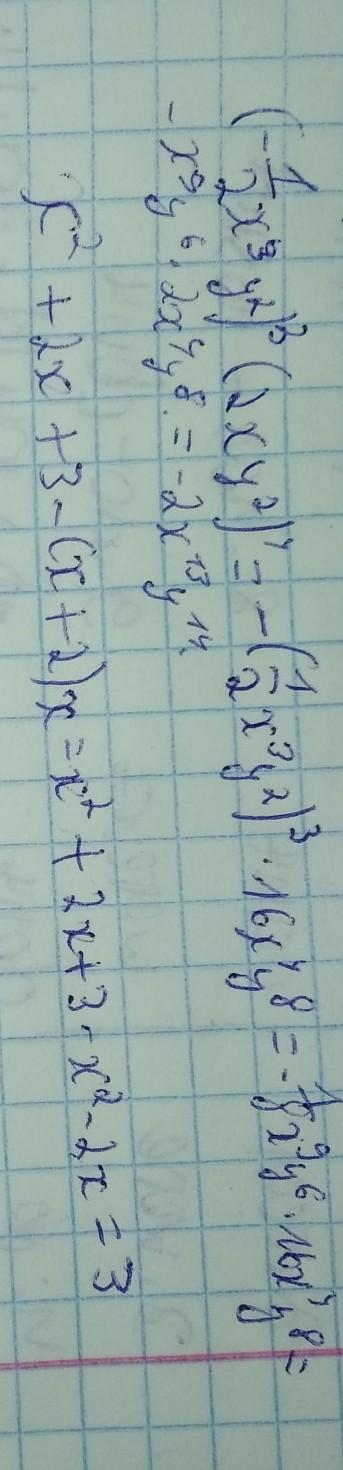 (-1/2x³y²)³(2xy²)⁴ = -(1/2x³y²)³ · 16x⁴y⁸ = -1/8x⁹y⁶ · 16x⁴y⁸ =
-x⁹y⁶ · 2x⁴y⁸ = -2x¹³y¹⁴
x² + 2x + 3 - (x + 2)x = x² + 2x + 3 - x² - 2x = 3